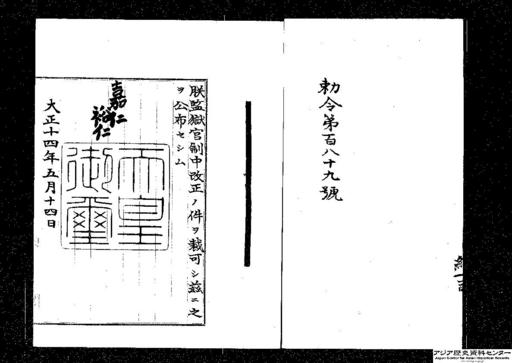 勅令第百八十九號
朕監獄官制中改正ノ件ヲ裁可シ茲ニ之
ヲ公布セシム
嘉仁
裕仁
天皇
御璽
大正十四年五月十四日
アジア歴史資料センター
Japan Center for Asian Historical Records